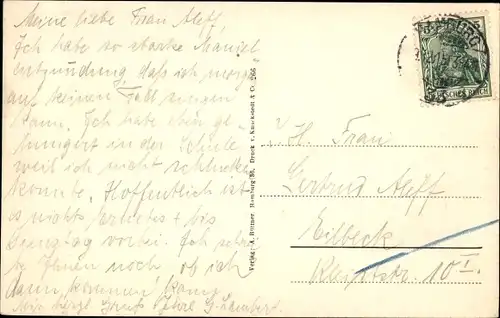 Meine liebe Frau Aleff,
Ich habe so starke Mandel
entzündung, daß ich morgen
auf keinen Fall singen
kann. Ich habe eben ge
hungert in der Schule
weil ich nicht schlucken
konnte. Hoffentlich ist
es nichts ernstes + bis
Dienstag vorbei. Ich schrei
be Ihnen noch, ob ich
dann kommen kann.
Mit herzl. Gruß Ihre G. Lambert.
Verlag: A. Büttner, Hamburg 25. Druck v. Knackstedt & Co. 266
HAMBURG
DEUTSCHES REICH
I. H. Frau
Gertrud Aleff
Eilbeck
Kleiststr. 10 I.